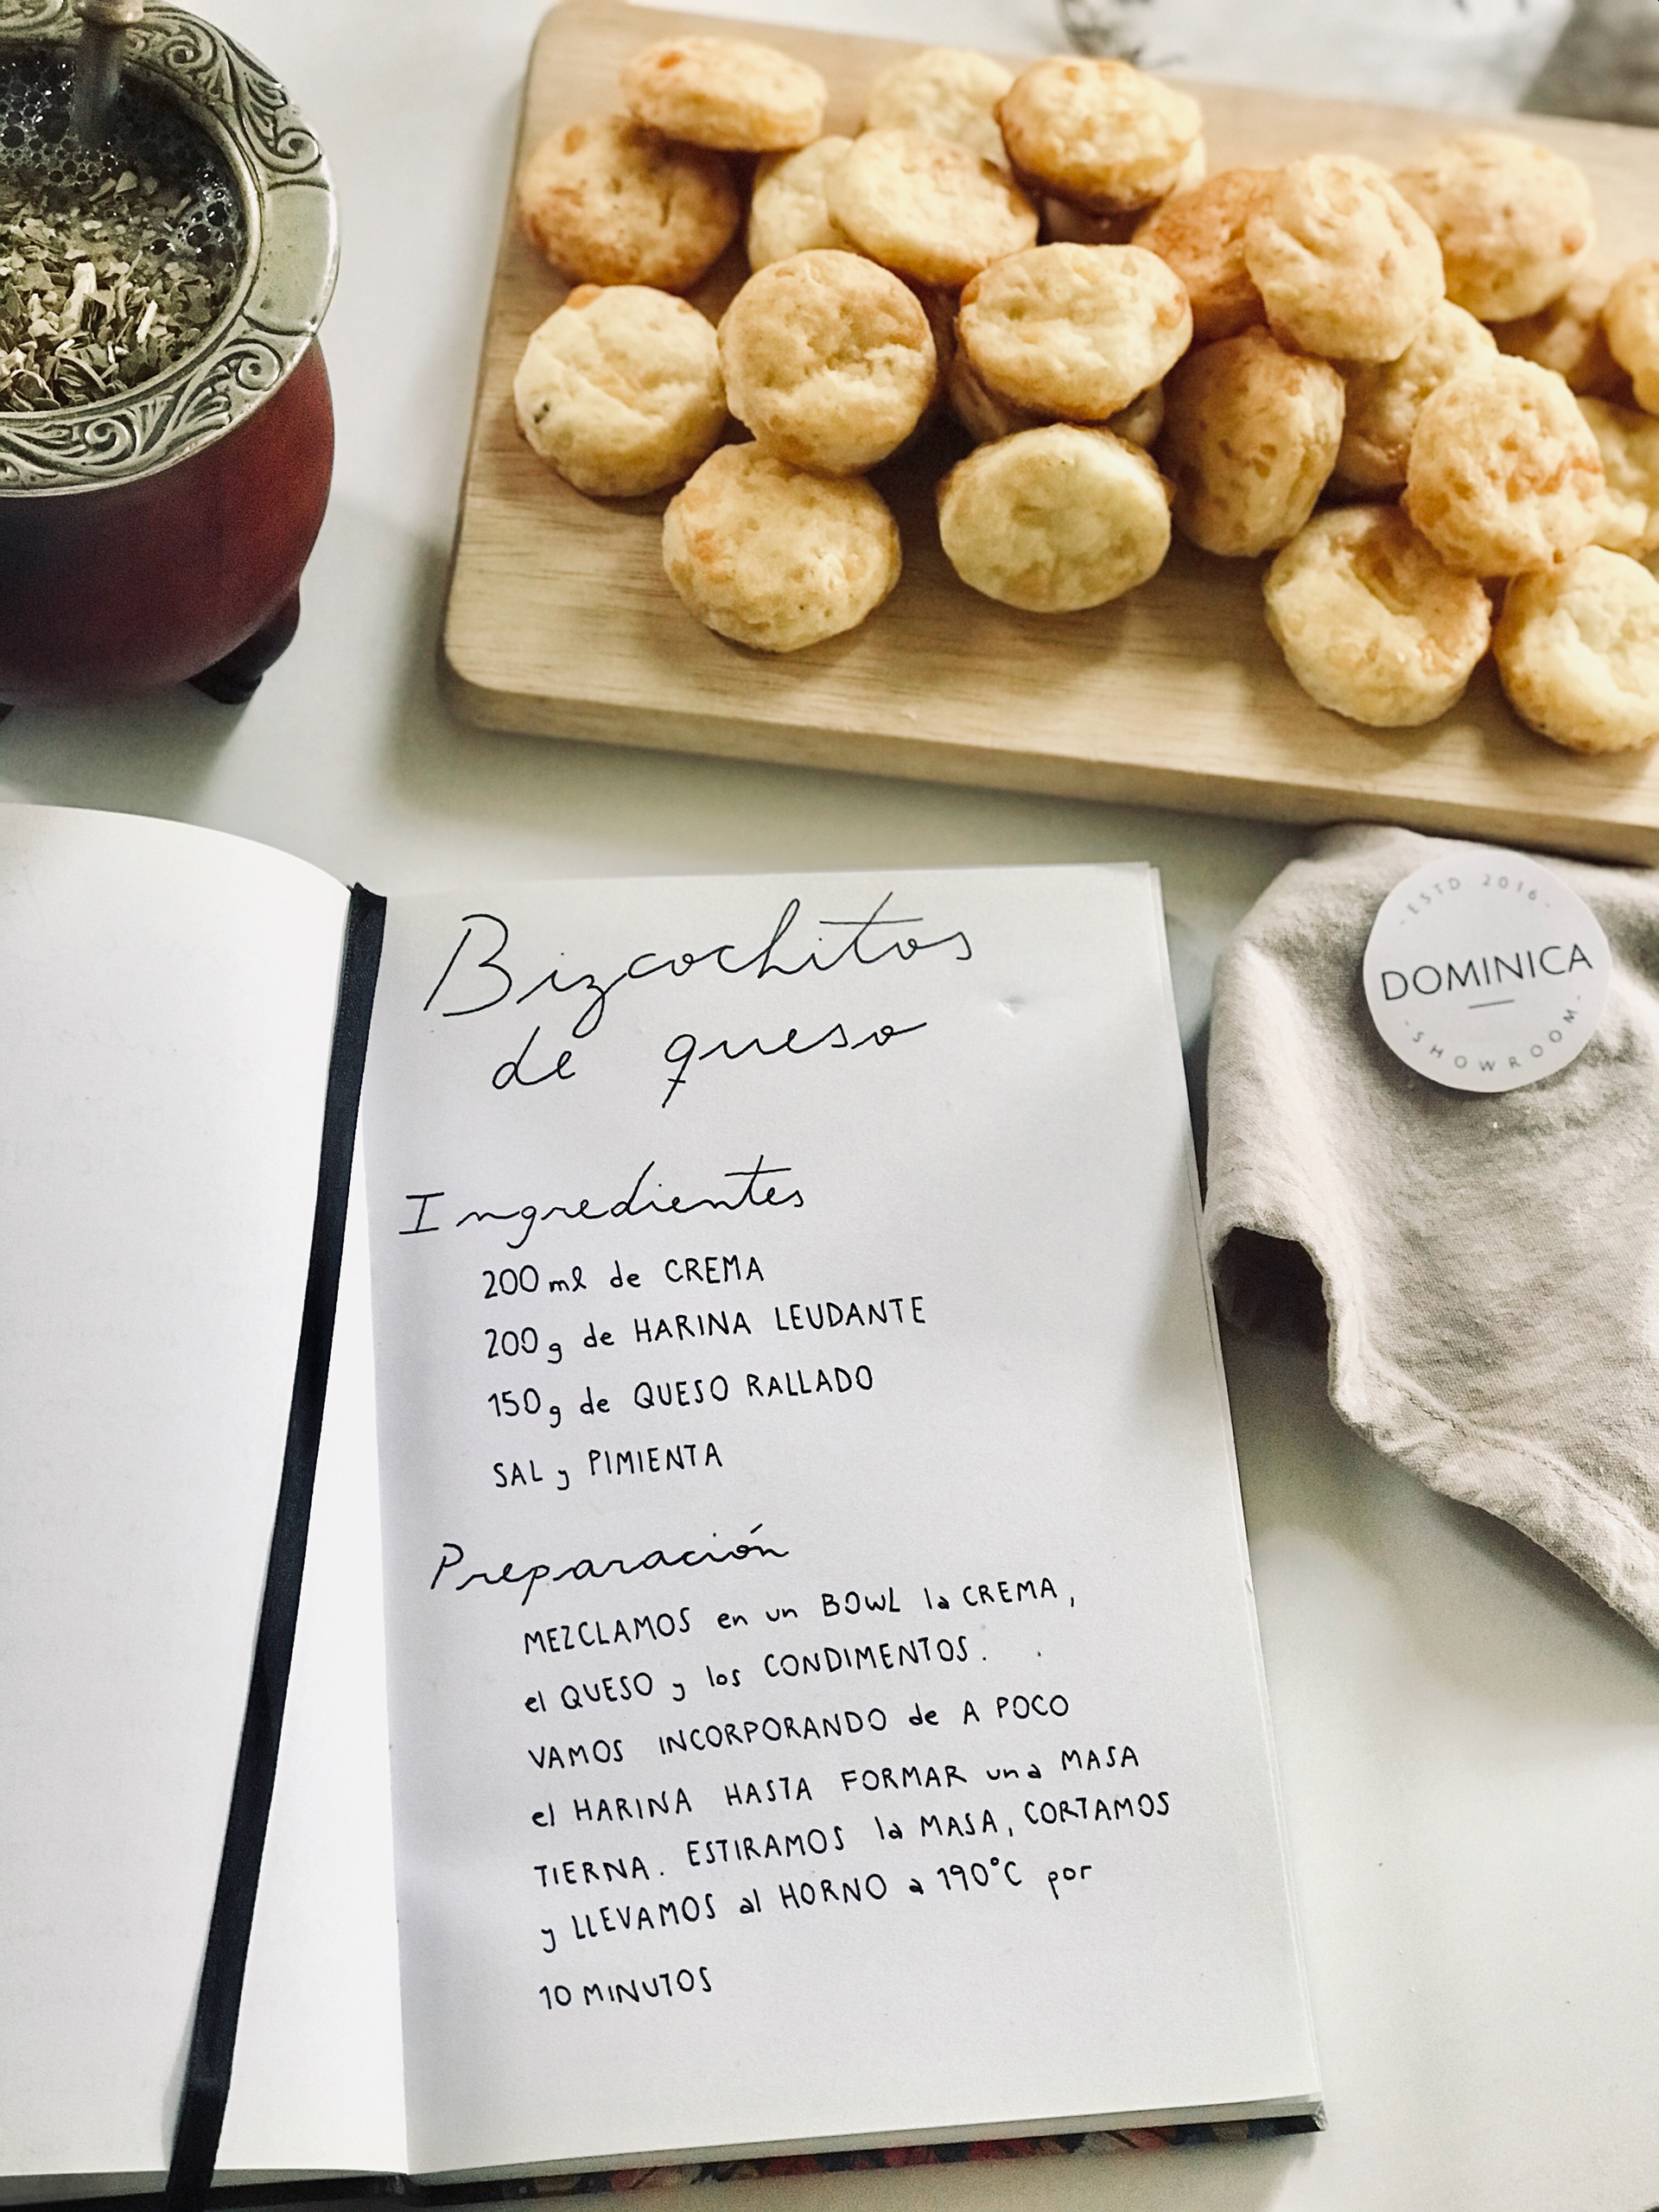 Bizcochitos
de queso
Ingredientes
200 ml de CREMA
200g de HARINA LEUDANTE
150g de QUESO RALLADO
SAL y PIMIENTA
Preparación
MEZCLAMOS en un BOWL la CREMA,
el QUESO y los CONDIMENTOS.
VAMOS INCORPORANDO de A POCO
el HARINA HASTA FORMAR una MASA
TIERNA. ESTIRAMOS la MASA, CORTAMOS
y LLEVAMOS al HORNO a 190°C por
10 MINUTOS
·ESTD 2016·
DOMINICA
·SHOWROOM·